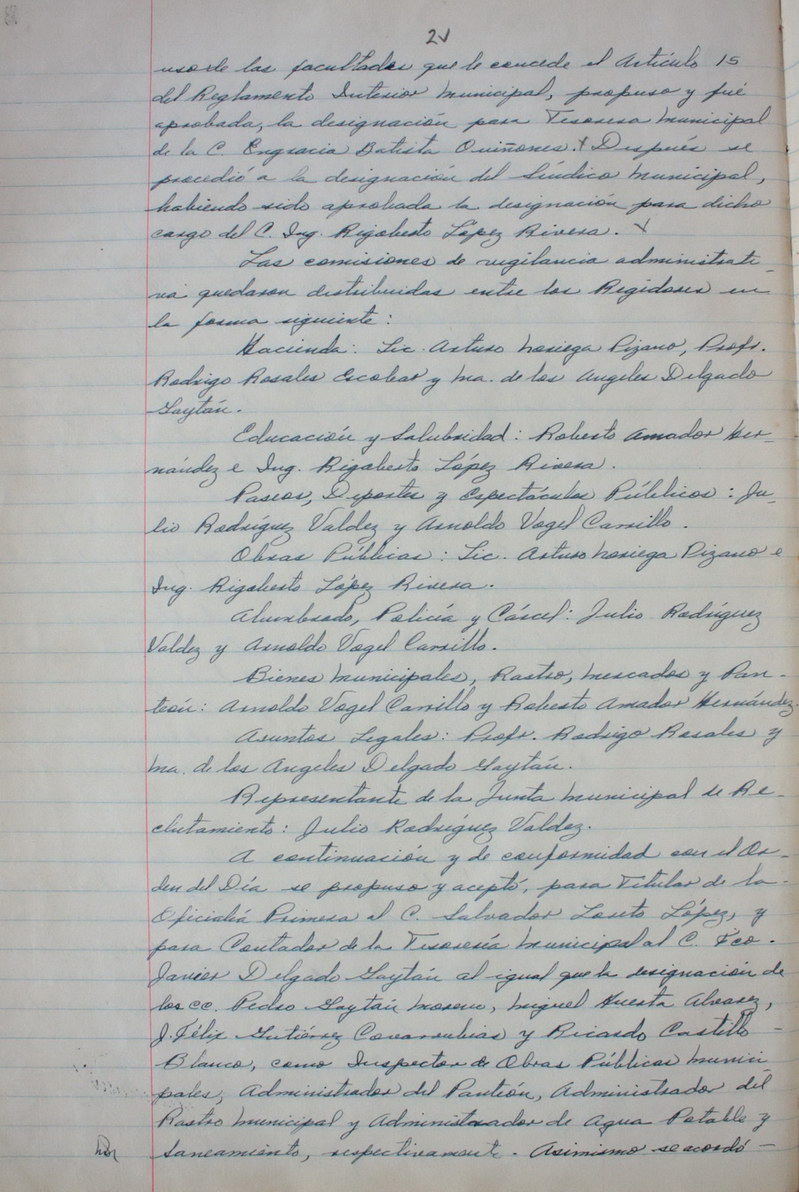 2✓
uso de las facultades que le concede el Artículo 15
del Reglamento Interior Municipal, propuso y fué
aprobada, la designación para Tesorera Municipal
de la C. Engracia Batista Quiñones. ✓ Después se
procedió a la designación del Síndico Municipal,
habiendo sido aprobada la designación para dicho
cargo del C. Ing. Rigoberto López Rivera. ✓
Las comisiones de vigilancia administrati-
va quedaron distribuidas entre los Regidores en
la forma siguiente:
Hacienda: Lic. Arturo Noriega Pizano, Profr.
Rodrigo Rosales Escobar y Ma. de los Angeles Delgado
Gaytán.
Educación y Salubridad: Roberto Amador Her-
nández e Ing. Rigoberto López Rivera.
Paseos, Deportes y Espectáculos Públicos: Ju-
lio Rodríguez Valdez y Arnoldo Vogel Carrillo.
Obras Públicas: Lic. Arturo Noriega Pizano e
Ing. Rigoberto López Rivera.
Alumbrado, Policía y Cárcel: Julio Rodríguez
Valdez y Arnoldo Vogel Carrillo.
Bienes Municipales, Rastro, Mercados y Pan-
teón: Arnoldo Vogel Carrillo y Roberto Amador Hernández.
Asuntos Legales: Profr. Rodrigo Rosales y
Ma. de los Angeles Delgado Gaytán.
Representante de la Junta Municipal de Re-
clutamiento: Julio Rodríguez Valdez.
A continuación y de conformidad con el Or-
den del Día se propuso y aceptó, para Titular de la
Oficialía Primera al C. Salvador Loreto López, y
para Contador de la Tesorería Municipal al C. Fco.
Javier Delgado Gaytán al igual que la designación de
los CC. Pedro Gaytán Moreno, Miguel Huerta Alvarez,
J. Félix Gutiérrez Covarrubias y Ricardo Castillo -
Blanco, como Inspector de Obras Públicas Munici
pales, Administrador del Panteón, Administrador del
Rastro Municipal y Administrador de Agua Potable y
Saneamiento, respectivamente. Asimismo se acordó -